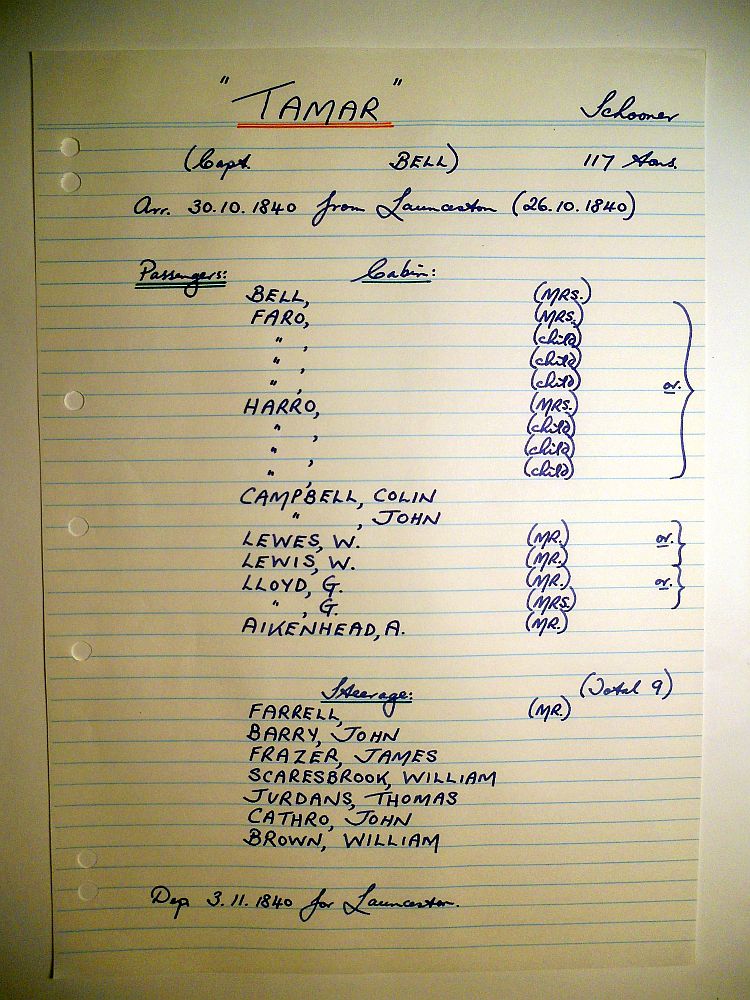 "TAMAR" Schooner
(Capt. BELL) 117 tons.
Arr. 30.10.1840 from Launceston (26.10.1840)
Passengers: Cabin:
BELL, (MRS.)
FARO, (MRS.)
" , (child)
" , (child)
" , (child) or.
HARRO, (MRS.)
" , (child)
" , (child)
" , (child)
CAMPBELL, COLIN
" , JOHN
LEWES, W. (MR.) or.
LEWIS, W. (MR.)
LLOYD, G. (MR.) or.
" , G. (MRS.)
AIKENHEAD, A. (MR.)
Steerage: (Total 9)
FARRELL, (MR.)
BARRY, JOHN
FRAZER, JAMES
SCARESBROOK, WILLIAM
JURDANS, THOMAS
CATHRO, JOHN
BROWN, WILLIAM
Dep. 3.11.1840 for Launceston.